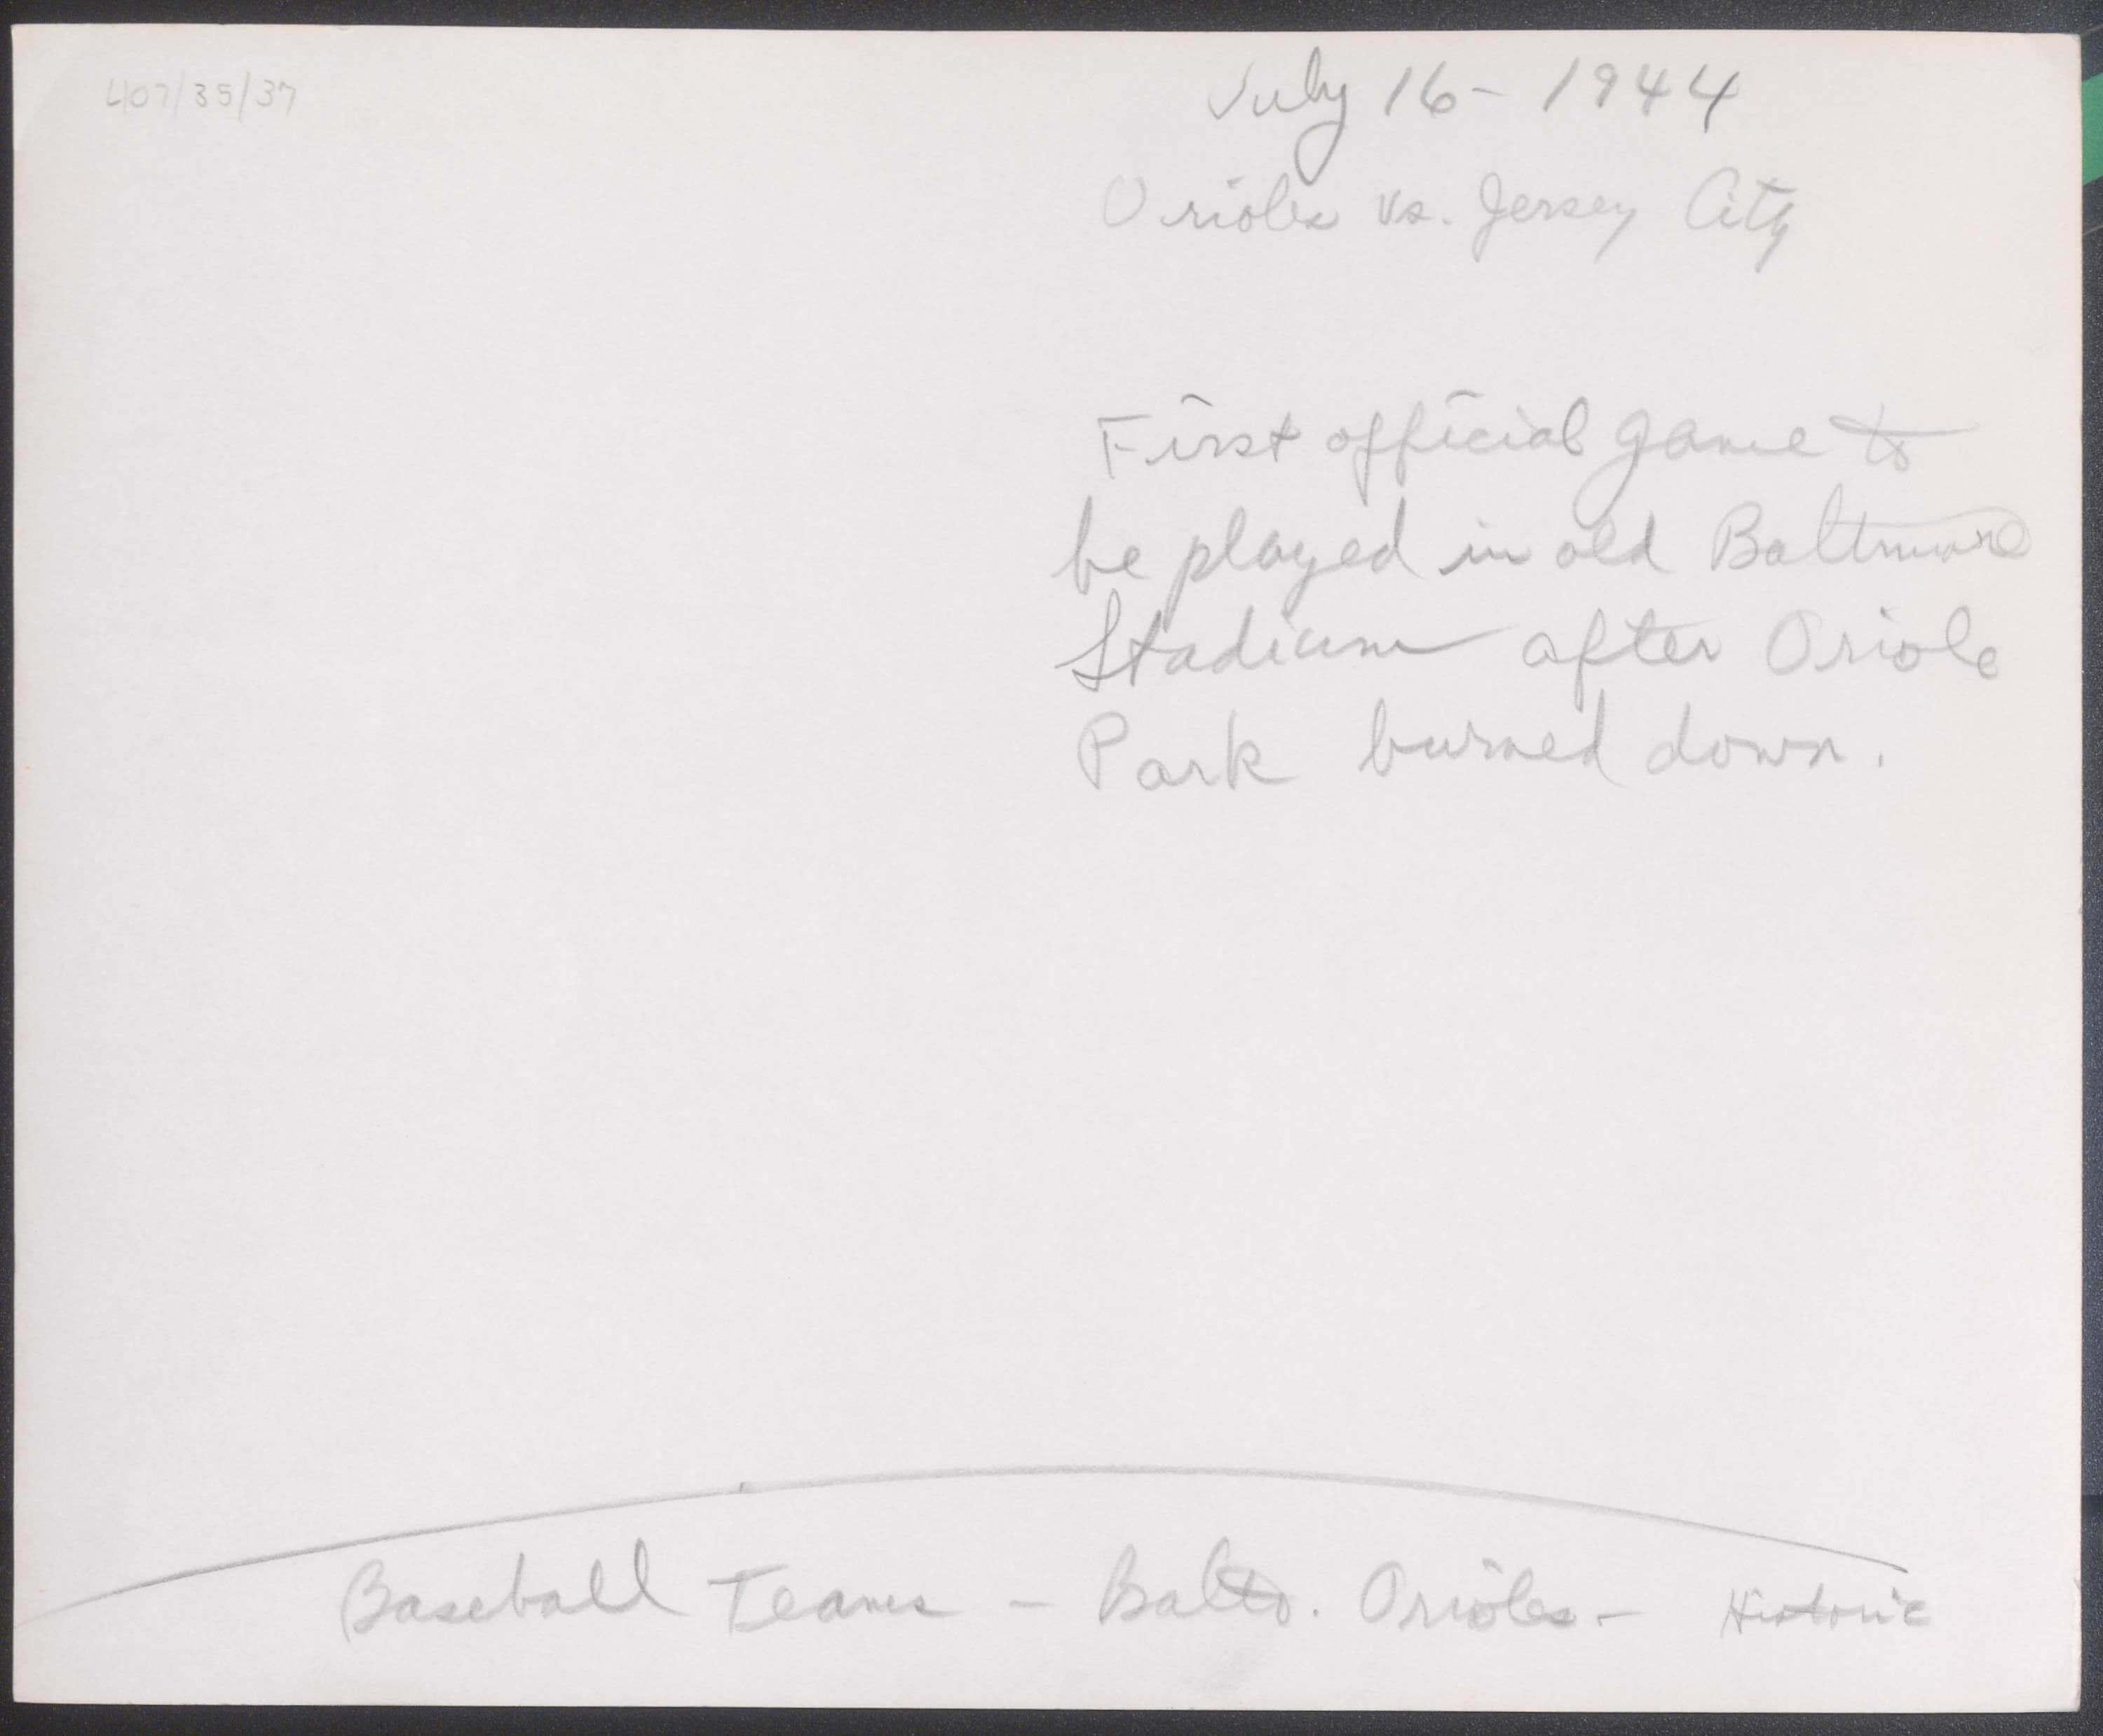 407/35/37
July 16 - 1944
Orioles vs. Jersey City
First official game to
be played in old Baltimore
Stadium after Oriole
Park burned down.
Baseball Teams - Balto. Orioles - Historic